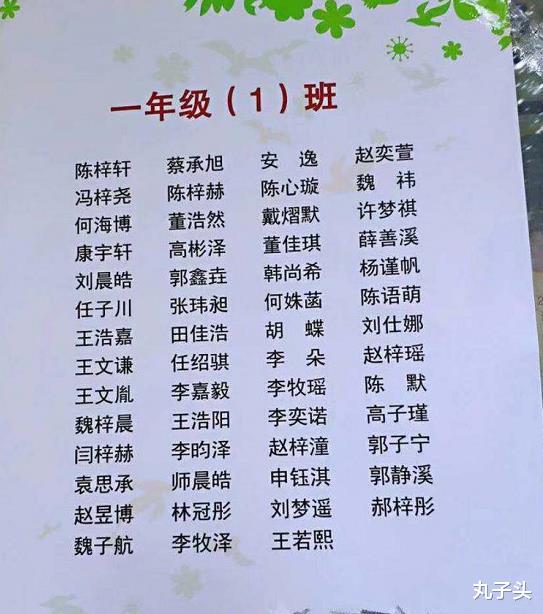 一年级（1）班
陈梓轩 蔡承旭 安逸 赵奕萱
冯梓尧 陈梓赫 陈心璇 魏祎
何海博 董浩然 戴熠默 许梦祺
康宇轩 高彬泽 董佳琪 薛善溪
刘晨皓 郭鑫垚 韩尚希 杨谨帆
任子川 张玮昶 何姝菡 陈语萌
王浩嘉 田佳浩 胡蝶 刘仕娜
王文谦 任绍骐 李朵 赵梓瑶
王文胤 李嘉毅 李牧瑶 陈默
魏梓晨 王浩阳 李奕诺 高子瑾
闫梓赫 李昀泽 赵梓潼 郭子宁
袁思承 师晨皓 申钰淇 郭静溪
赵昱博 林冠彤 刘梦遥 郝梓彤
魏子航 李牧泽 王若熙
丸子头